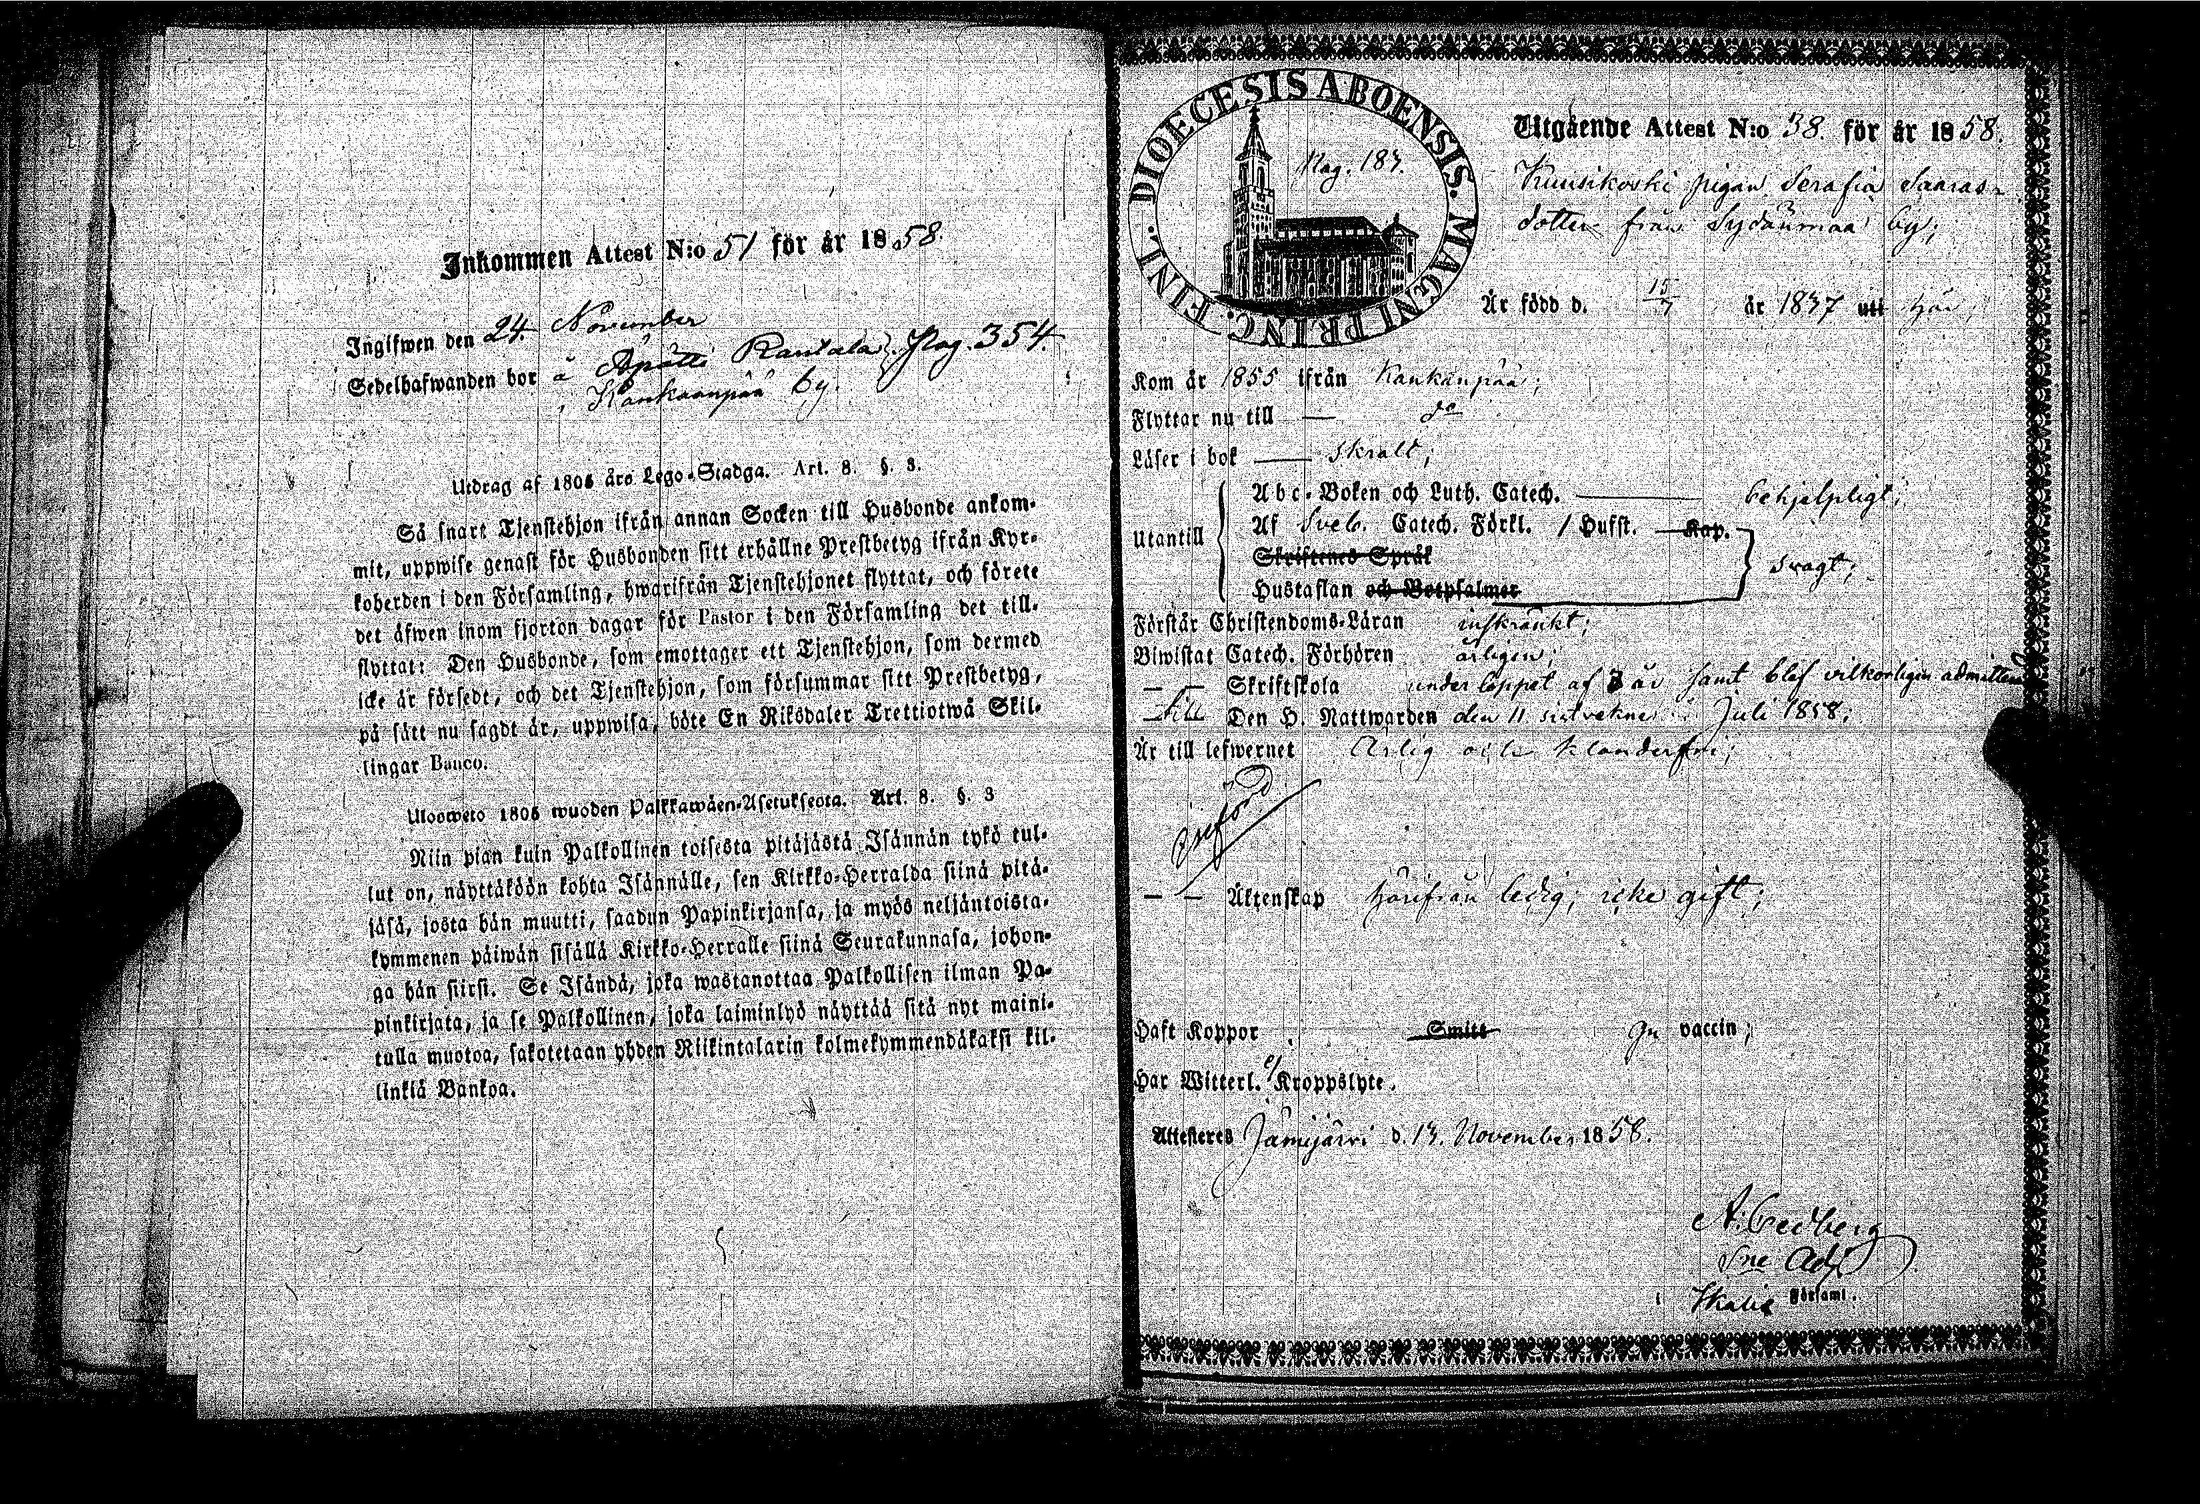 Inkommen Attest N:o 51 för år 1858.
Ingifwen den 24. November
Sedelhafwanden bor å Rantala, Pag. 354.
Kankaanpää by.
Utdrag af 1805 års Lego-Stadga. Art. 8. §. 3.
Så snart Tjenstehjon ifrån annan Socken till Husbonde ankom-
mit, uppwise genast för Husbonden sitt erhållne Prestbetyg ifrån Kyr-
koherden i den Församling, hwarifrån Tjenstehjonet flyttat, och förete
det äfwen inom fjorton dagar för Pastor i den Församling det till-
flyttat: Den Husbonde, som emottager ett Tjenstehjon, som dermed
icke är försedt, och det Tjenstehjon, som försummar sitt Prestbetyg,
på sätt nu sagdt är, uppwisa, böte En Riksdaler Trettiotwå Skil-
lingar Banco.
Uloswето 1805 wuoden Palkkawäen-Asetuksesta. Art. 8. §. 3
Niin pian kuin Palkollinen toisesta pitäjästä Isännän tykö tul-
lut on, näyttäköön kohta Isännälle, sen Kirkko-Herralda siinä pitä-
jäsä, josta hän muutti, saadun Papinkirjansa, ja myös neljäntoista-
kymmenen päiwän sisällä Kirkko-Herralle siinä Seurakunnasa, johon-
ga hän siirsi. Se Isändä, joka wastanottaa Palkollisen ilman Pa-
pinkirjata, ja se Palkollinen, joka laiminlyö näyttää sitä nyt maini-
tulla muotoa, sakotetaan yhden Riikintalarin kolmekymmendäkaksi kil-
linkiä Bankoa.
DIOECESIS ABOENSIS. MAGNI PRINC. FINL.
Pag. 187.
Utgående Attest N:o 38. för år 1858.
Kuusikoski pigan Serafia Saaras-
dotter från Sydänmaa by;
Är född d. 15/7 år 1837 uti
Kom år 1855 ifrån Kankanpää;
Flyttar nu till — do
Läser i bok — skralt;
Utantill
Abc-Boken och Luth. Catech. — behjelpligt;
Af Sveb. Catech. Förkl. 1 Hufst. — Kap.
Skriftenes Språk
Hustaflan och Botpsalmer
svagt;
Förstår Christendoms-Läran inskränkt;
Biwistat Catech. Förhören årligen;
— — Skriftskola under loppet af 3 år samt blef vilkorligen
— till Den H. Nattwarden den 11 Juli 1858;
Är till lefwernet Ärlig och klanderfri;
— — Äktenskap härifrån ledig; icke gift;
Haft Koppor Smitt vaccin;
Har Witterl. ej Kroppslyte.
Attesteres Jämijärvi d. 13. November 1858.
A. Cedberg
Sne Adj
Ikalis Församl.